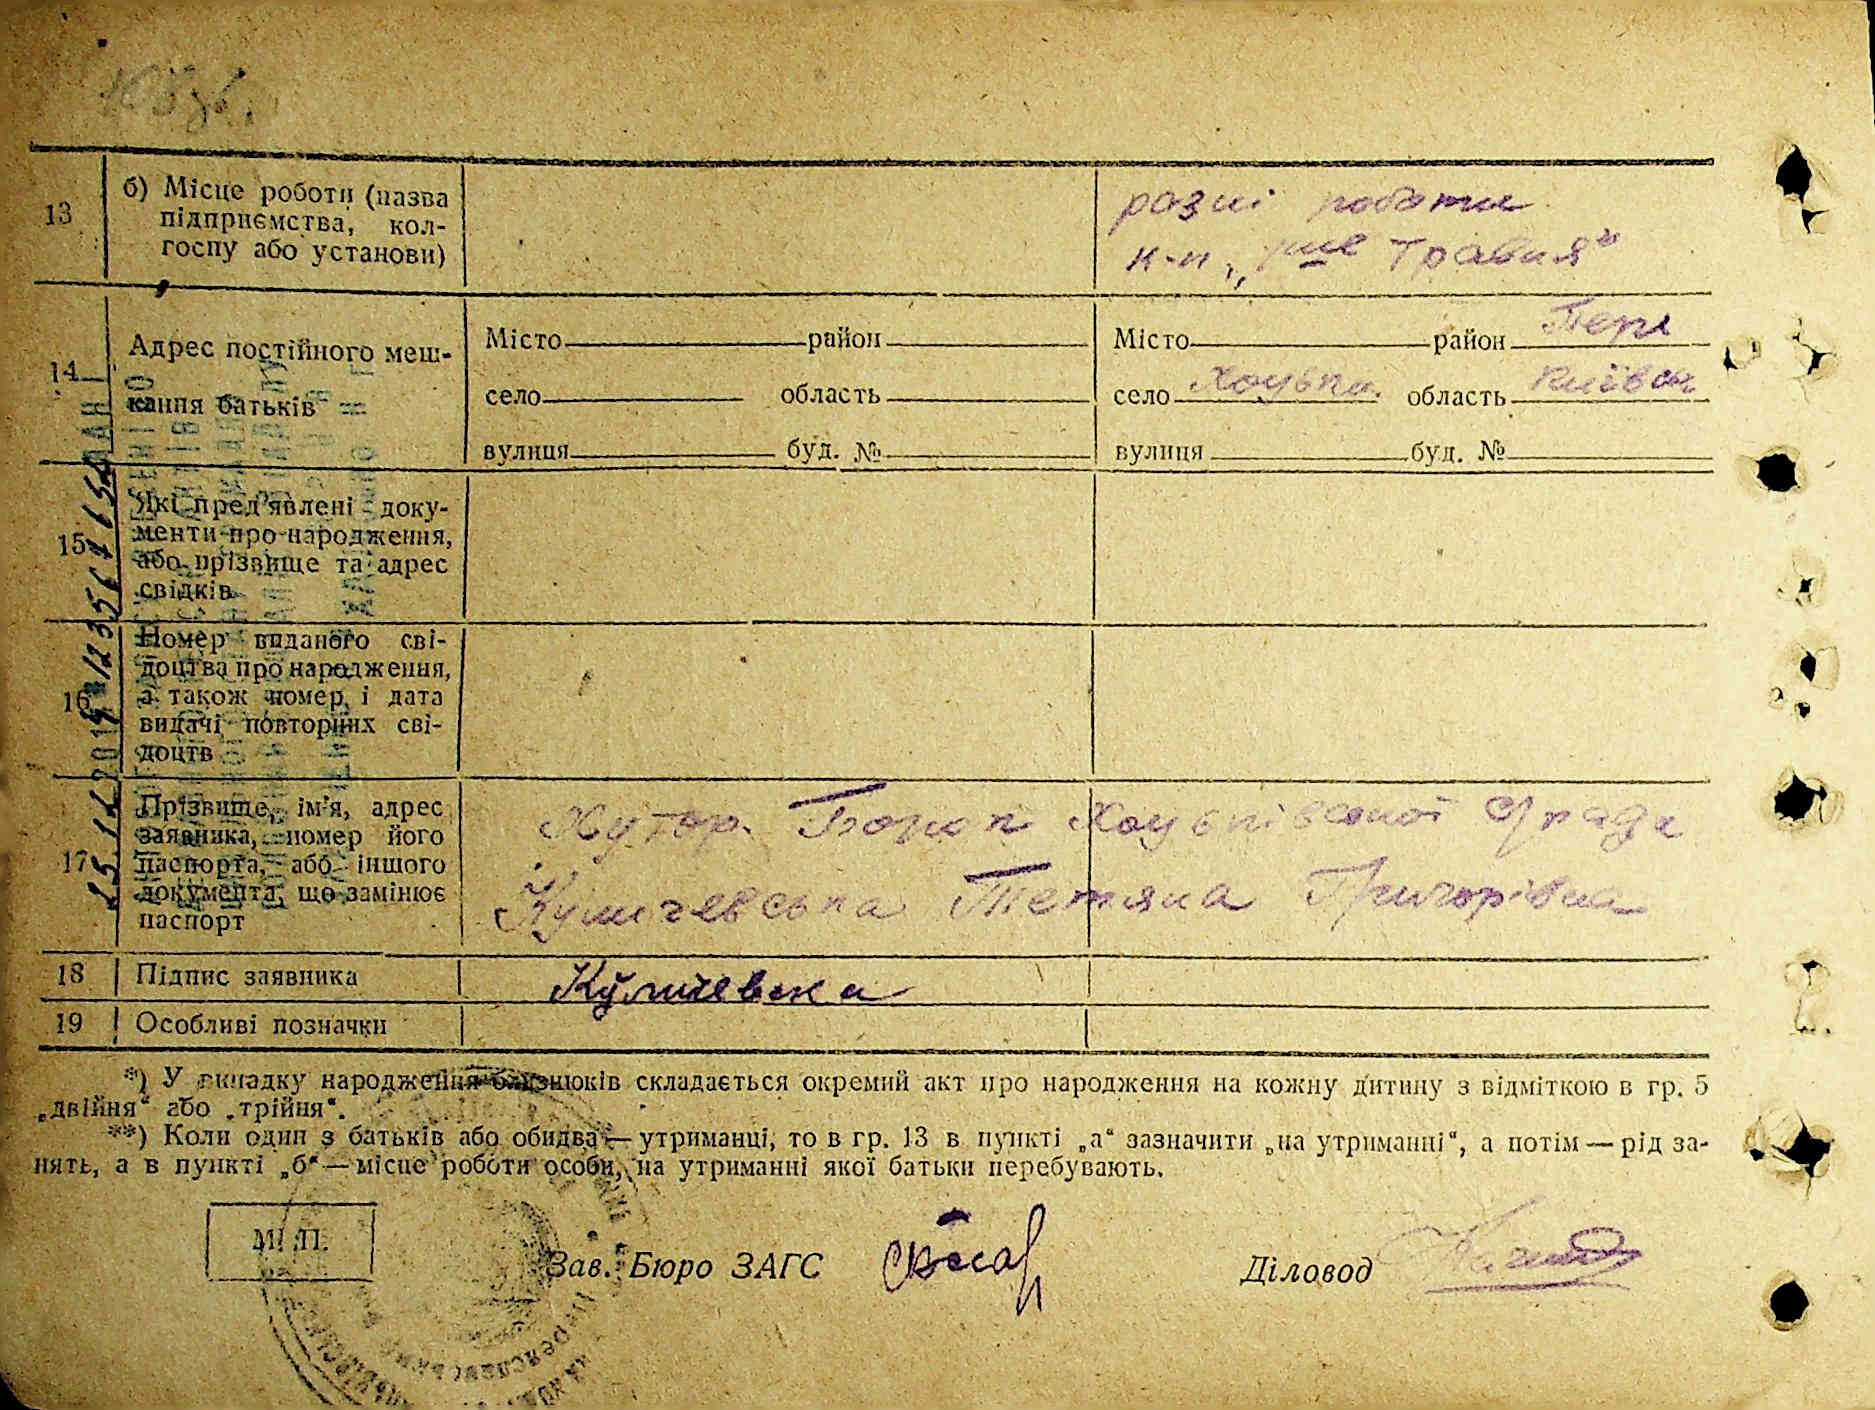 13
б) Місце роботи (назва
підприємства, кол-
госпу або установи)
розні роботи
к-п „1ше Травня“
14
Адрес постійного меш-
кання батьків
Місто район
село область
вулиця буд. №
Місто район Пере
село Хоцьки область Київськ
вулиця буд. №
15
Які пред'явлені доку-
менти про народження,
або прізвище та адрес
свідків
16
Номер виданого сві-
доцтва про народження,
а також номер і дата
видачі повторних сві-
доцтв
17
Прізвище, ім'я, адрес
заявника, номер його
паспорта, або іншого
документа, що замінює
паспорт
Хутор Хоцьківської с/ради
Куличевська Тетяна Григорівна
18 Підпис заявника
Куличевска
19 Особливі позначки
*) У випадку народження близнюків складається окремий акт про народження на кожну дитину з відміткою в гр. 5
„двійня“ або „трійня“.
**) Коли один з батьків або обидва — утриманці, то в гр. 13 в пункті „а“ зазначити „на утриманні“, а потім — рід за-
нять, а в пункті „б“ — місце роботи особи, на утриманні якої батьки перебувають.
М. П.
Зав. Бюро ЗАГС
Діловод